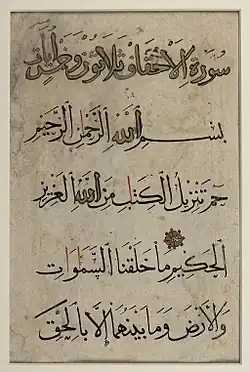 سورة الاحقاف ثلاثون وخمس ايات
بسم الله الرحمن الرحيم
حم تنزيل الكتاب من الله العزيز
الحكيم ما خلقنا السموات
والارض وما بينهما الا بالحق